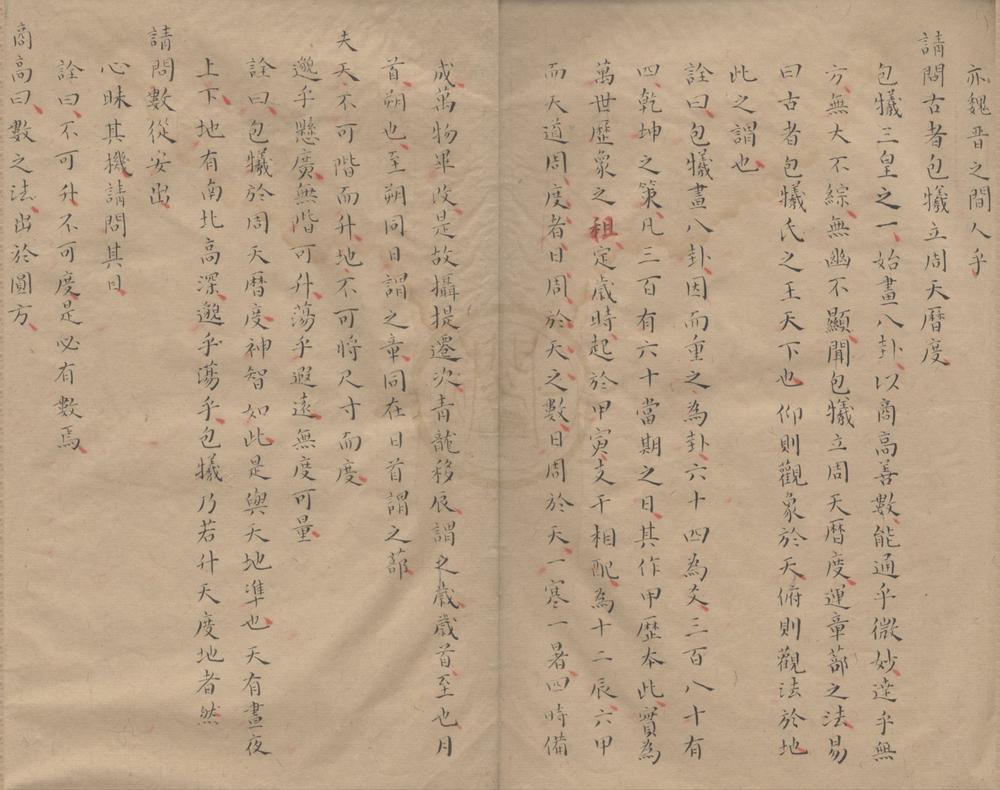 亦魏晋之間人乎
請問古者包犧立周天曆度
包犧三皇之一始畫八卦以商高善數能通乎微妙達乎無
方無大不綜無幽不顯聞包犧立周天曆度運章蔀之法易
曰古者包犧氏之王天下也仰則觀象於天俯則觀法於地
此之謂也
詮曰包犧畫八卦因而重之為卦六十四為爻三百八十有
四乾坤之策凡三百有六十當期之日其作甲歷本此實為
萬世歷象之祖定歲時起於甲寅支干相配為十二辰六甲
而天道周度者日周於天之數日周於天一寒一暑四時備
成萬物畢改是故攝提遷次青龍移辰謂之歲歲首至也月
首朔也至朔同日謂之章同在日首謂之蔀
夫天不可階而升地不可將尺寸而度
邈乎懸廣無階可升蕩乎遐遠無度可量
詮曰包犧於周天曆度神智如此是與天地準也天有晝夜
上下地有南北高深邈乎蕩乎包犧乃若升天度地者然
請問數從安出
心昧其機請問其目
詮曰不可升不可度是必有數焉
商高曰數之法出於圓方